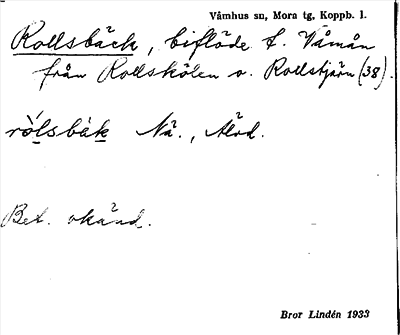 Våmhus sn, Mora tg, Koppb. l.
Rollsbäck, biflöde t. Våmån
från Rollskölen o. Rollstjärn (38).
ròlsbäk Nä., Älvd.
Bet. okänd.
Bror Lindén 1933